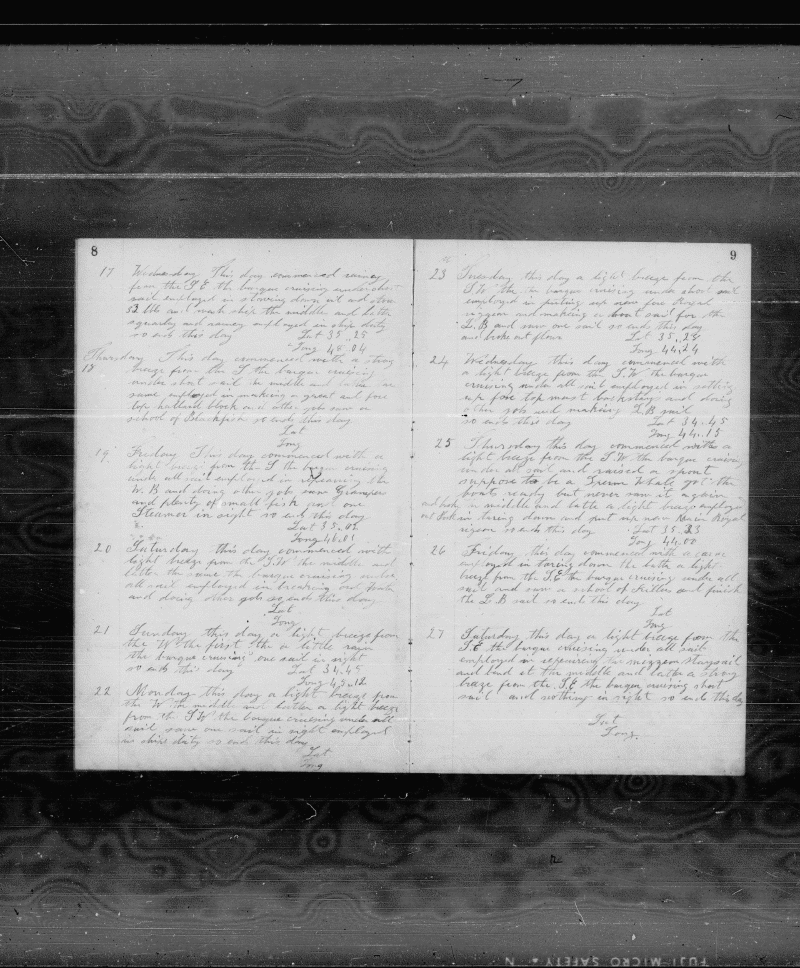 8
17 Wednesday This day commenced rainey
from the S.E. the barque cruising under short
sail employed in stowing down oil and stove
the middle and latter
squally and rainey employed in ship duty
so ends this day Lat 35..25
Long 45.04
Thursday This day commenced with a strong
18 breeze from the S. the barque cruising
under short sail the middle and latter the
same employed in making a great and fore
top halliard block and other jobs saw a
school of Blackfish so ends this day
Lat
Long
19 Friday This day commenced with a
light breeze from the S. the barque cruising
under all sail employed in repearing the
W.B and doing other jobs saw Grampus
and plenty of small fish past one
Steamer in sight so ends this day
Lat 35.02
Long 46.01
20 Saturday this day commenced with
light breeze from the S.W the middle and
latter the same the barque cruising under
all sail employed in breaking out
and doing other jobs so ends this day
Lat
Long
21 Sunday this day a light breeze from
the W. the first the a little rain
the barque cruising one sail in sight
so ends this day Lat 34.45
Long 45.12
22 Monday this day a light breeze from
the W. the middle and latter a light breeze
from the S.W. the barque cruising under all
sail saw one sail in sight employed
in ships duty so ends this day
Lat
Long
9
23 Tuesday this day a light breeze from the
S.W the barque cruising under short sail
employed in puting up new fore Royal
rigen and making a boat sail for the
L.B and saw one sail so ends this day
and broke out flour Lat 35..28
Long 44.24
24 Wednesday this day commenced with
a light breeze from the S.W. the barque
cruising under all sail employed in setting
up fore top most backstay and doing
other jobs and making L B sail
so ends this day Lat 34.45
Long 44.15
25 Thursday this day commenced with a
light breeze from the S.W. the barque cruising
under all sail and raised a spout
suppose to be a Sperm Whale got the
boats ready but never saw it again
middle and latter a light breeze employed
in taring down and put up new Main Royal
rigen so ends this day Lat 35.33
Long 44.00
26 Friday this day commenced with a
employed in taring down the latter a light
breeze from the S.E the barque cruising under all
sail and saw a school of Killers and finish
the L.B sail so ends this day
Lat
Long
27 Saturday this day a light breeze from the
S.E. the barque cruising under all sail
employed in repearing the mizzen Staysail
and bend it the middle and latter a strong
breeze from the S.E the barque cruising short
sail and nothing in sight so ends this day
Lat
Long.
FUJI MICRO SAFETY N